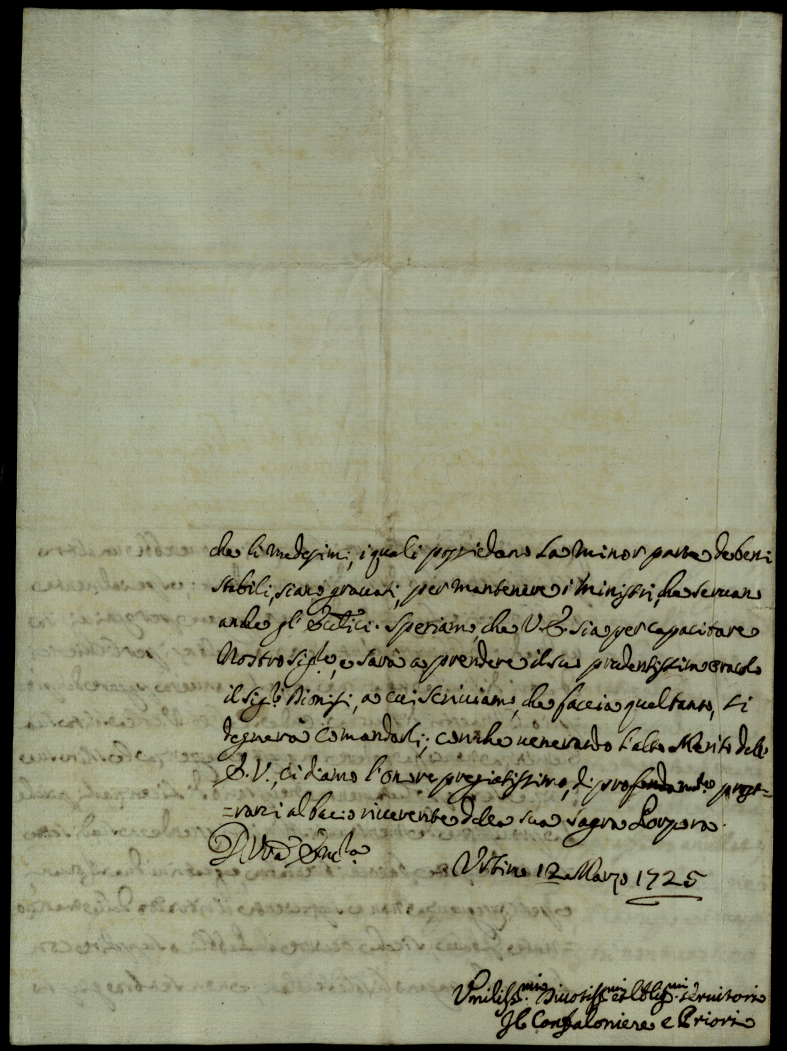 che li medesimi, i quali possiedono La minor parte de beni
stabili, siano gravati, per mantenere i Ministri, che servano
anche gl' Ecc.lici. Speriamo che V. E. sia per capacitare
Nostro Sig.re, e sarà a prendere il suo prudentissimo oracolo
il Sig.r Dionisi, a cui scriviamo, che faccia quel tanto, si
degnerà Comandarli; con che venerando l'alto Merito dell'
E. V., ci diamo l'onore pregiatissimo, di profondam.te
=rarci al bacio riverente della sua Sagra Porpora.
D. Vra
Urbino 12 Marzo 1725
Umiliss.mi Divotiss.mi et Oblig.mi Servitori
Il Confaloniere e Priori